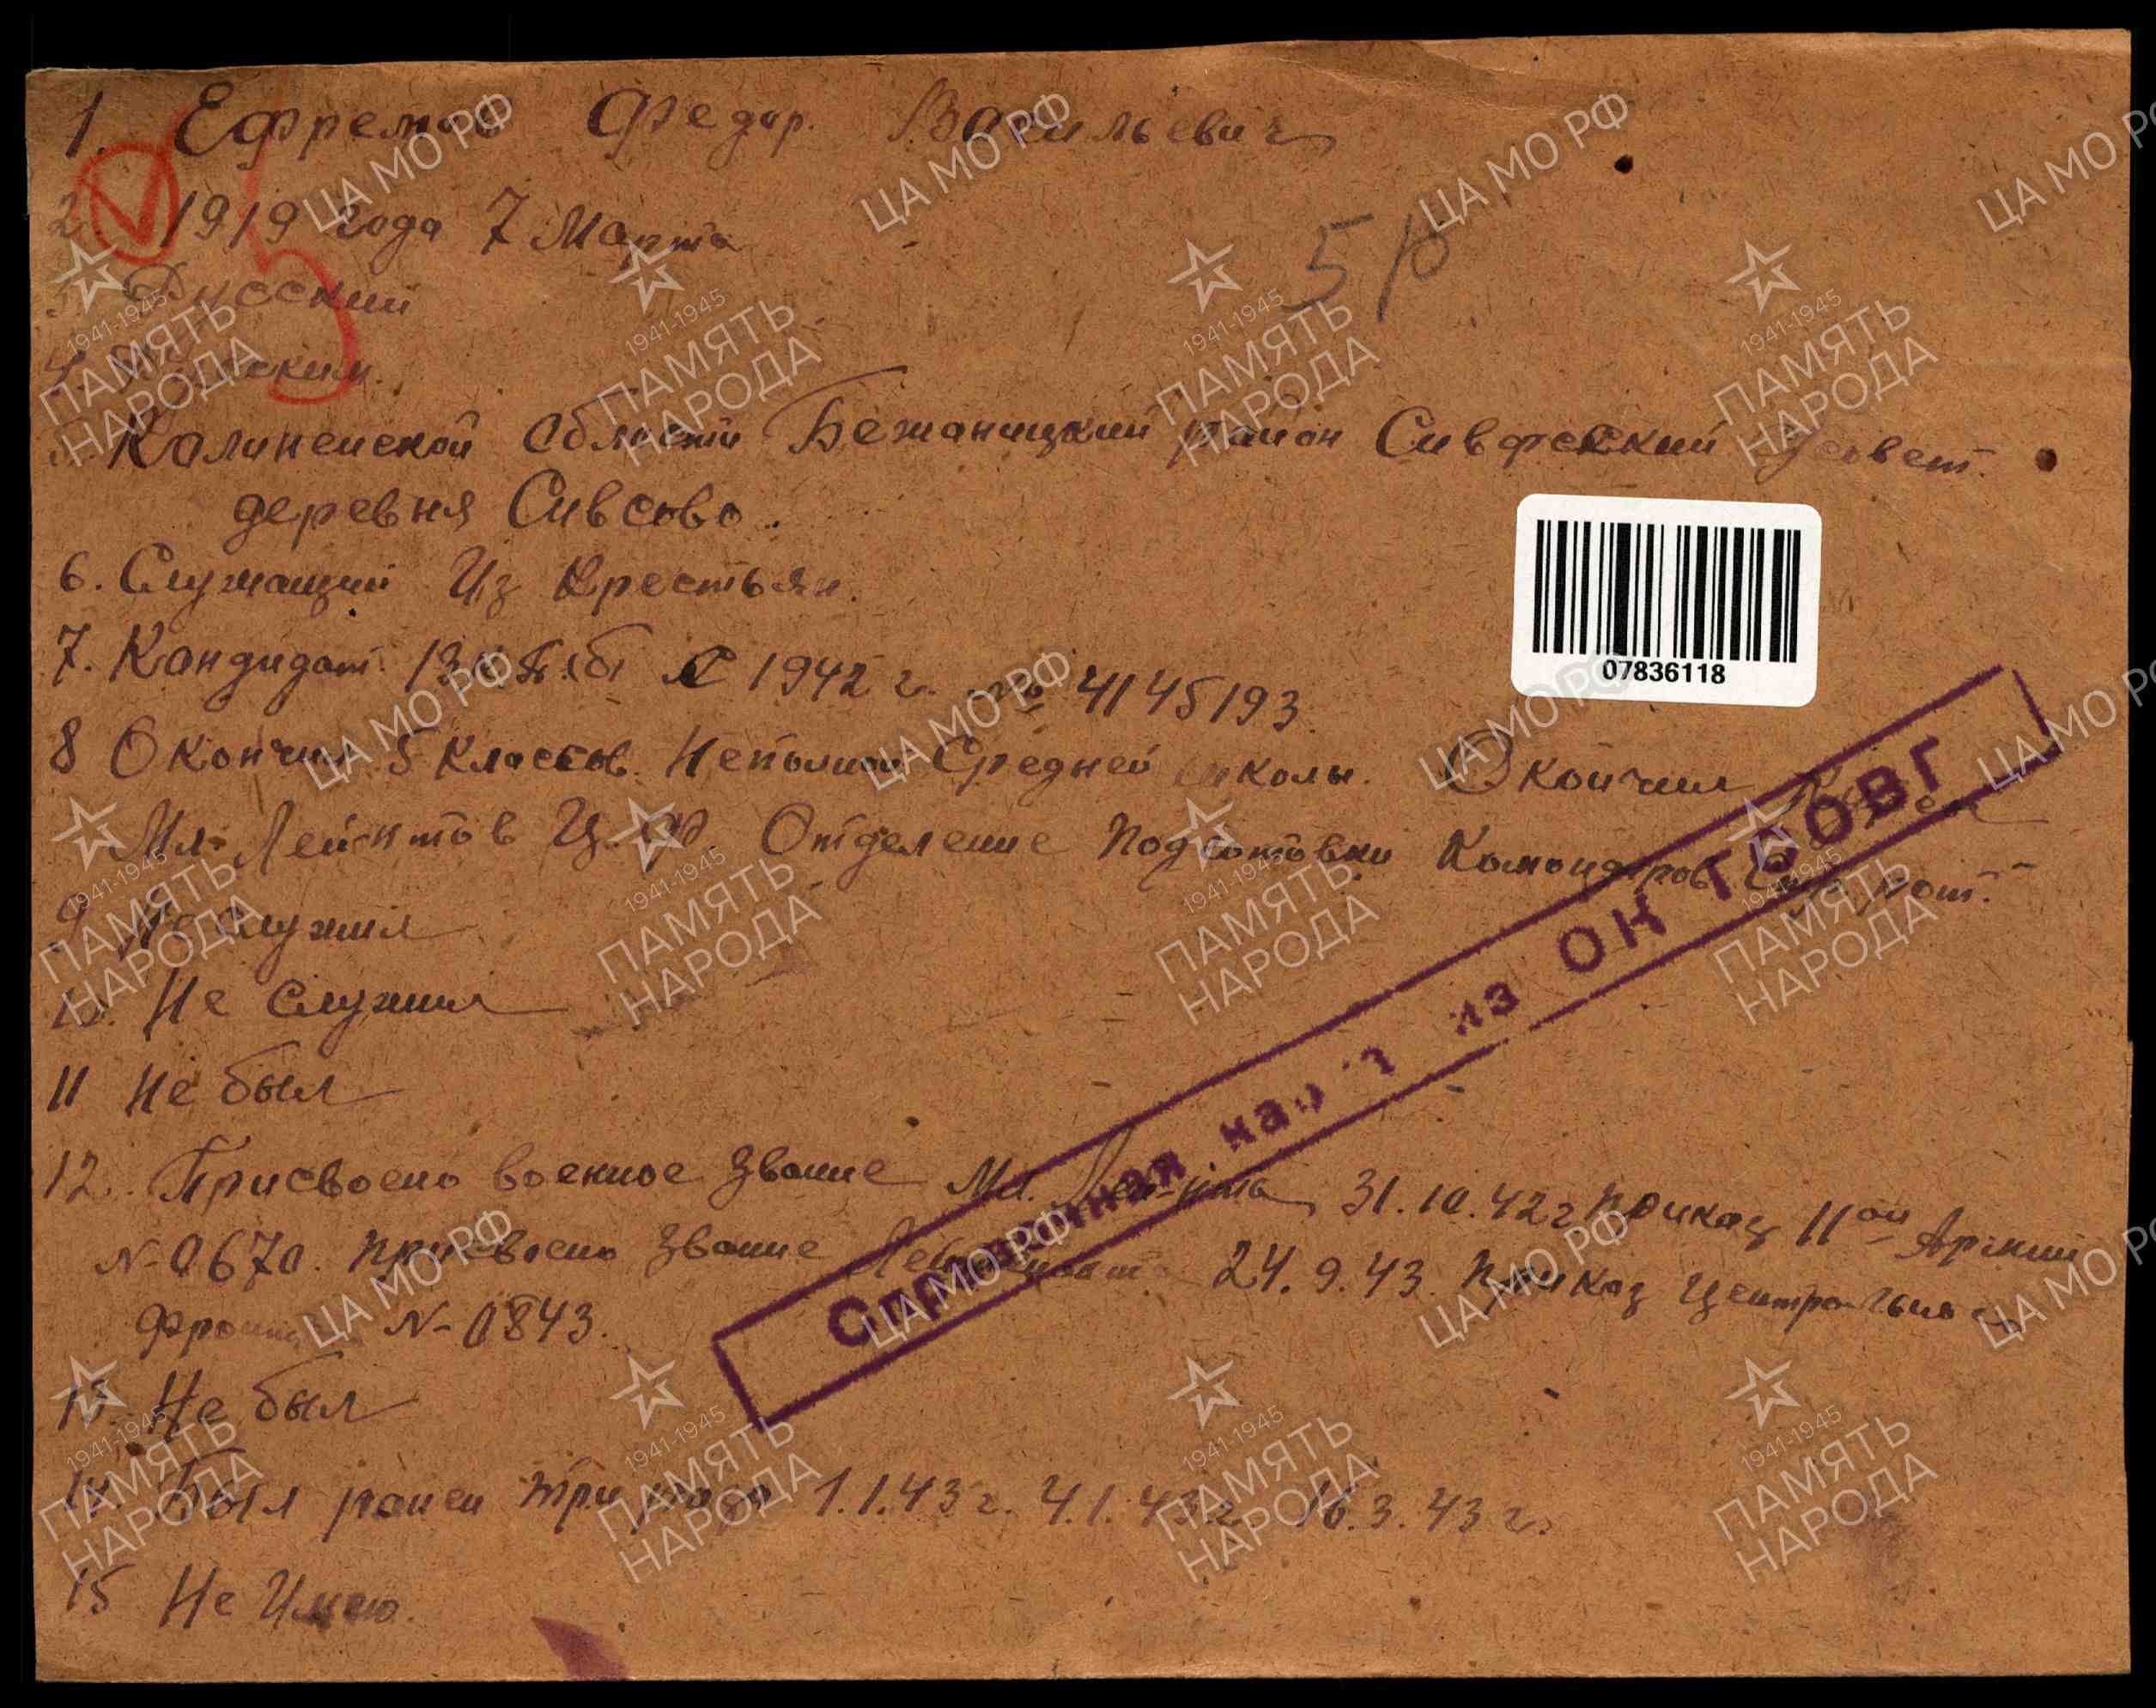 1. Ефремов Федор. Васильевич
2 1919 года 7 Марта
5 р
3. Русский
4. Русским.
5. Калиненской области Бежаницкий район Сивфский с/совет.
деревня Сивсово.
6. Служащий Из Крестьян.
7. Кандидат В.К.П.(б) С 1942 г. № 4145193
8 Окончил 5 Классов. Неполной Средней школы. Окончил
Мл. Лейт-нтов Ц.Ф. Отделение Подготовки Командиров рот.
9. Не служил
10. Не Служил
11 Не был
12. Присвоено военное звание Мл. Лей-нта 31.10.42 г Приказ 11ой Армии
N-0670. Присвоено звание Лейтенант 24.9.43. Приказ Центрального
Фронта N-0843.
13. Не был
14. Был ранен три раза 1.1.43 г. 4.1.43 г 16.3.43 г.
15 Не Имею.
07836118
Справочная карт из ОК ГСОВГ
ЦА МО РФ
1941-1945
ПАМЯТЬ
НАРОДА